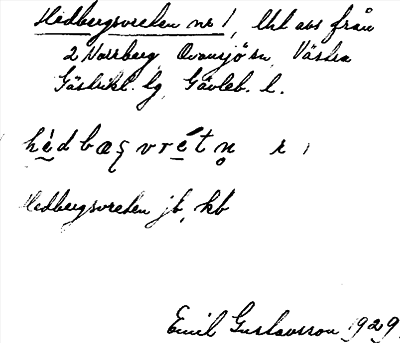 Hedbergsvreten nr 1, lht avs från
2 Norrberg, Ovansjö sn, Västra
Gästrikl. tg, Gävleb. l.
hèdbæȿvrétn̥ r 1
Hedbergsvreten jb, kb
Emil Gustavsson 1929.